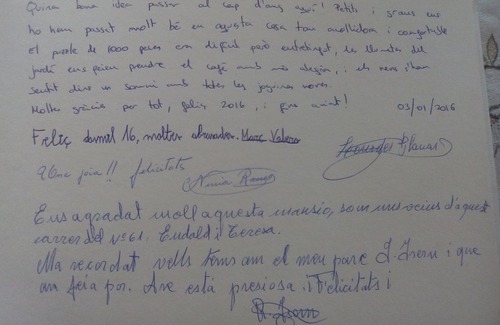 Quina bona idea passar el cap d'any aquí! Petits i grans ens
ho hem passat molt bé en aquesta casa tan acollidora i confortable
el puzzle de 1000 peces era difícil però entretingut, les llambes del
jardí ens feien prendre el cafè amb més, i els nens s'han
sentit dins un somni amb totes les joguines noves.
Moltes gràcies per tot, feliç 2016, i fins aviat!
03/01/2016
Feliç 16, moltes abraçades. Marc Valero
Lourdes Planas
Una joia!! felicitats
Núria
Ens agradat moll aquesta mansio, som uns veins d'aquest
carrer del nº 61. Eudald i Teresa.
Ma recordat vells tems am el meu pare J. Isern i que
an feia por. Are està presiosa. i Felicitats i
Isern